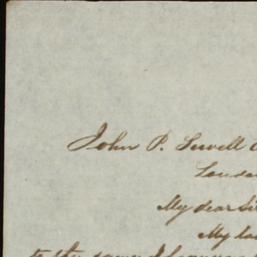 John P. Sewell
Londo
My dear Si
My la
to the